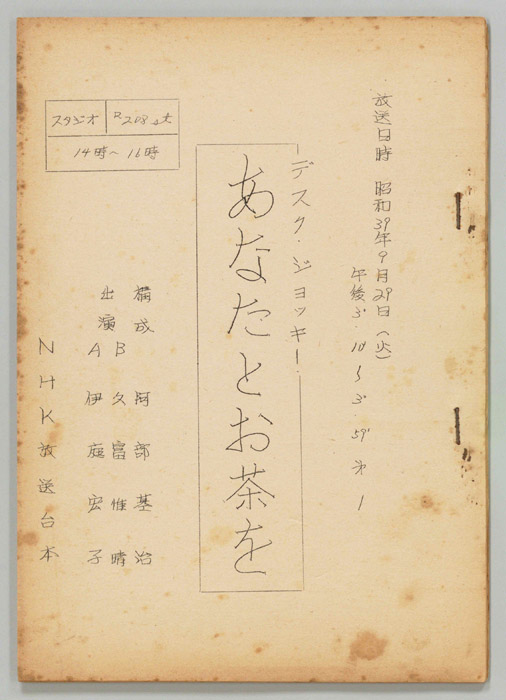 放送日時 昭和39年9月29日(火)
午後3'・10〜3'・59' 才1
―デスク・ジョッキー―
あなたとお茶を
スタジオ R208スタ
14時〜16時
構成 阿部基治
出演 B 久富惟晴
A 伊庭宏子
NHK放送台本